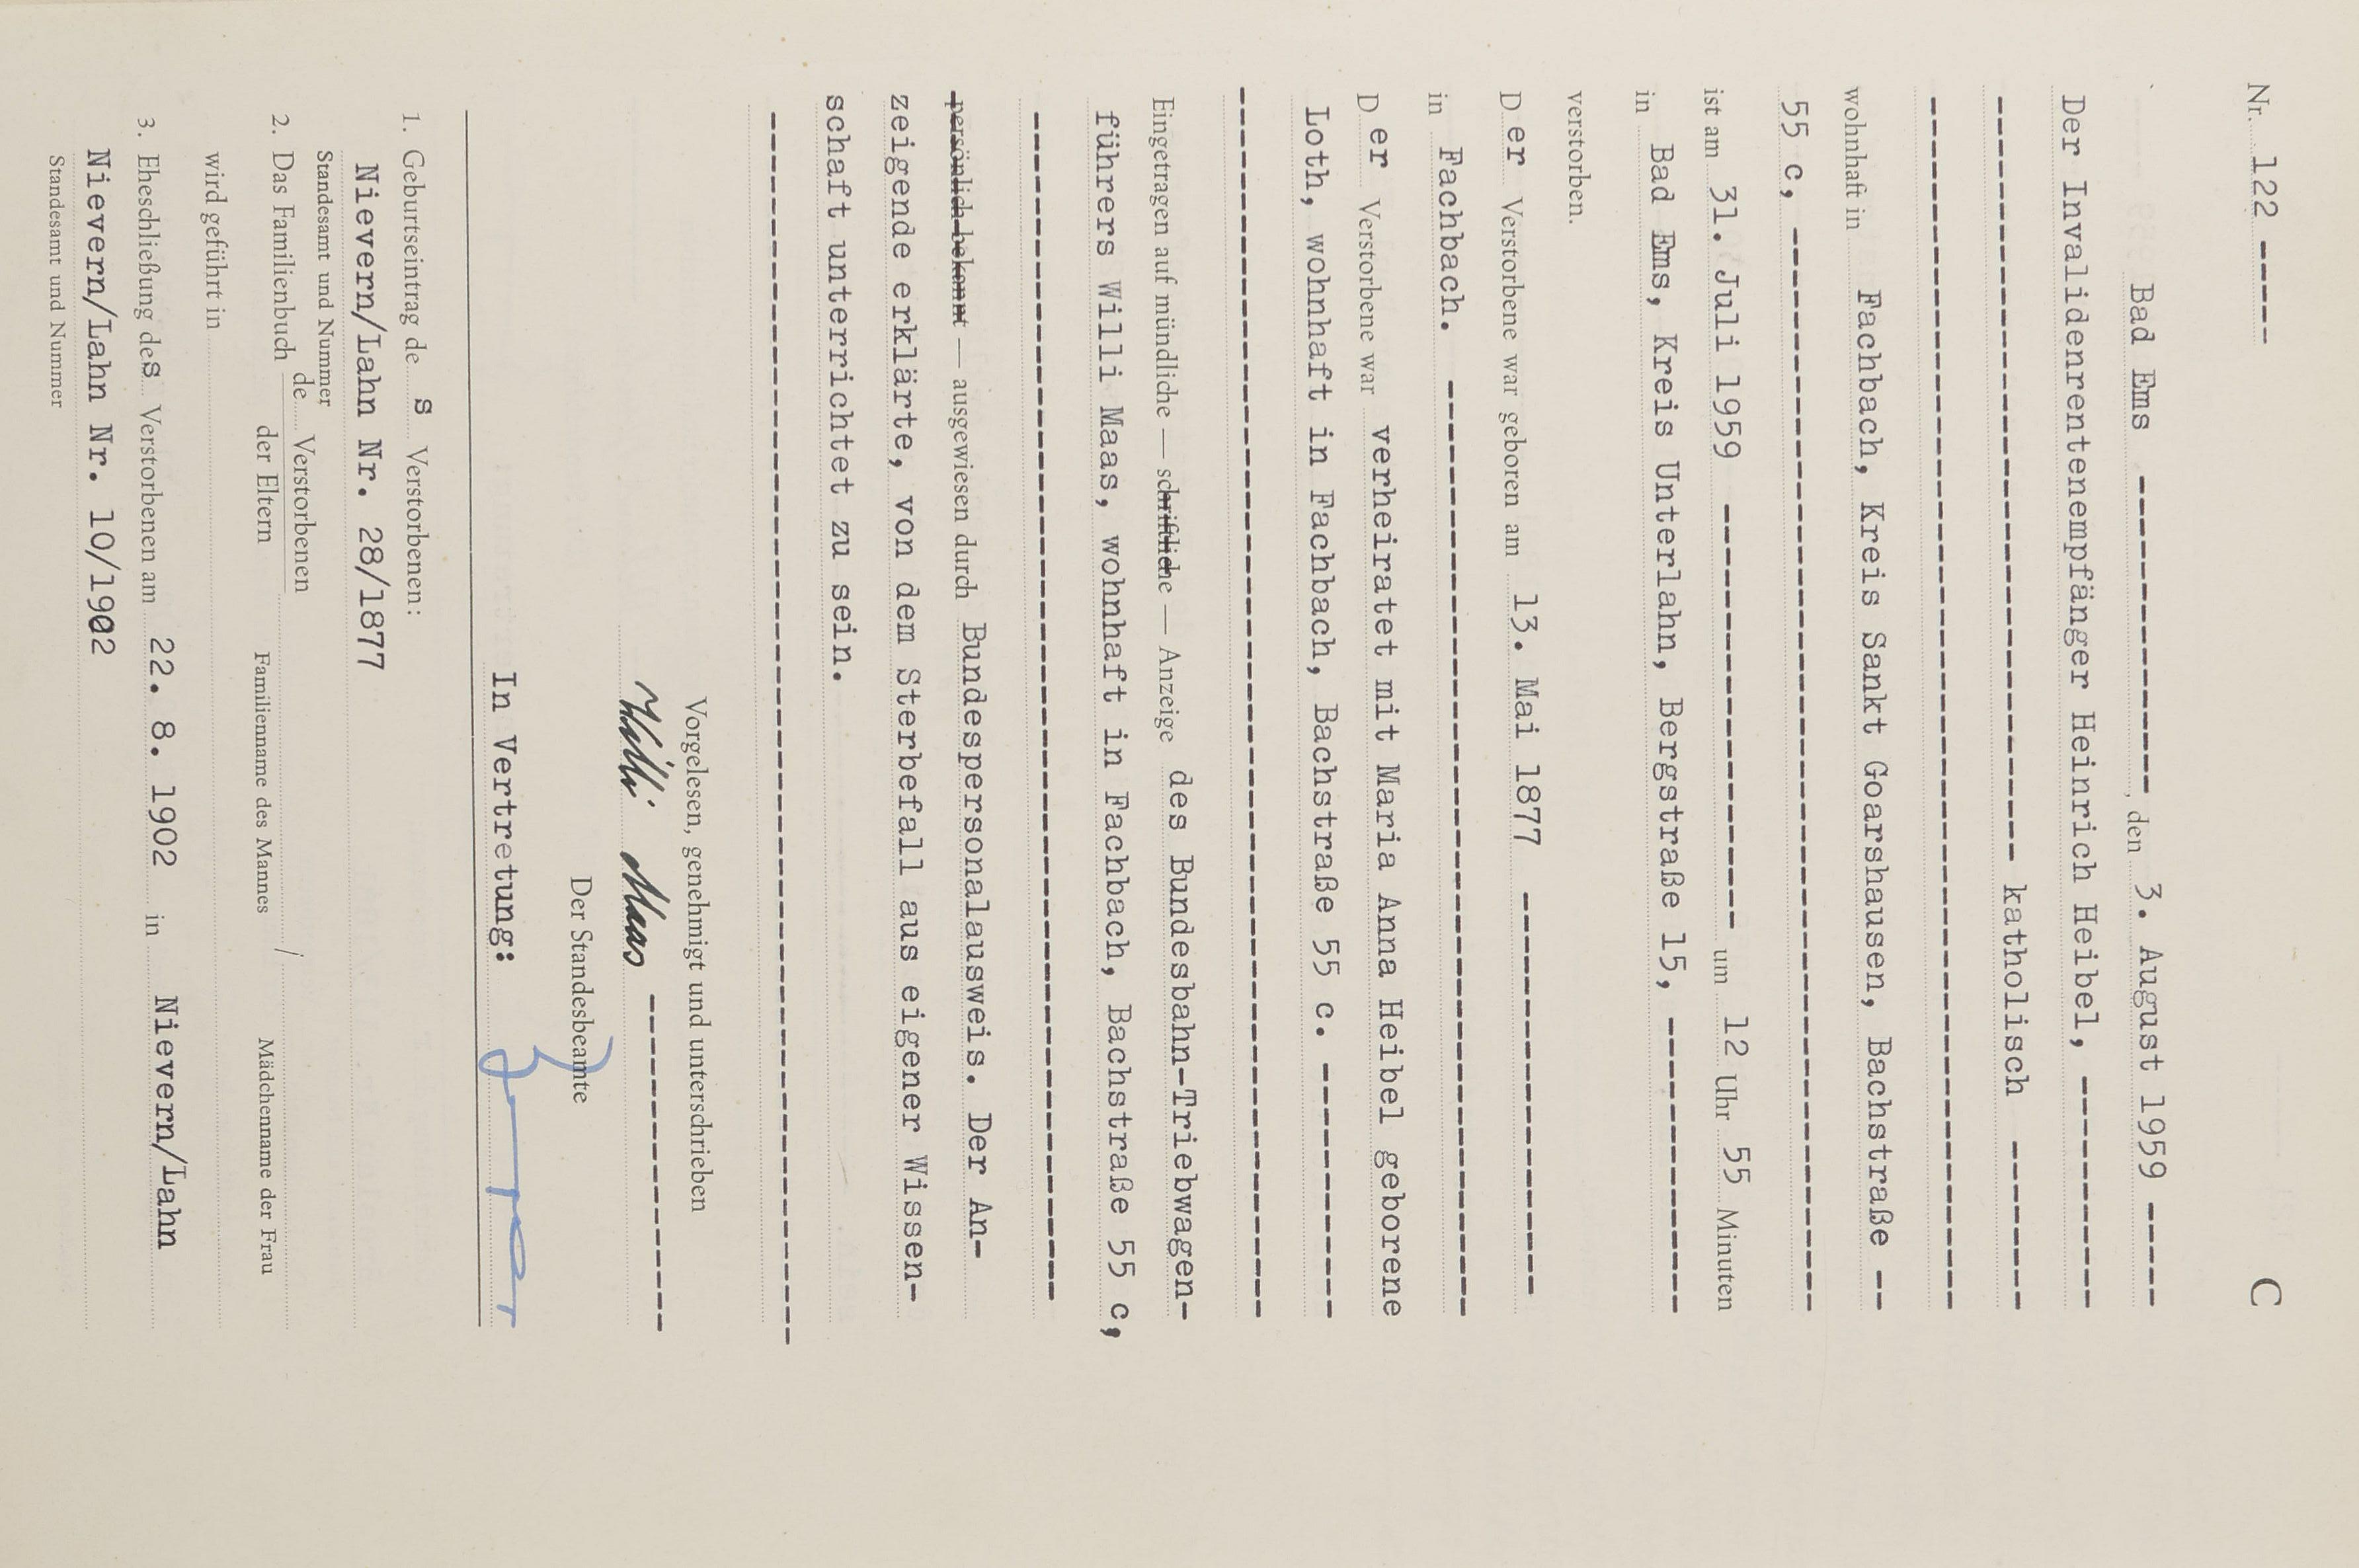 Nr. 122 ----- C
Bad Ems --------------, den 3. August 1959 -----
Der Invalidenrentenempfänger Heinrich Heibel, -----------
----------------------------------- katholisch --------
------------------------------------------------------
wohnhaft in Fachbach, Kreis Sankt Goarshausen, Bachstraße --
55 c, ------------------------------------------------
ist am 31. Juli 1959 ------------------- um 12 Uhr 55 Minuten
in Bad Ems, Kreis Unterlahn, Bergstraße 15, -------------
verstorben.
Der Verstorbene war geboren am 13. Mai 1877 ------------------
in Fachbach. ------------------------------------------
Der Verstorbene war verheiratet mit Maria Anna Heibel geborene
Loth, wohnhaft in Fachbach, Bachstraße 55 c. -----------
------------------------------------------------------
Eingetragen auf mündliche — schriftliche — Anzeige des Bundesbahn-Triebwagen-
führers Willi Maas, wohnhaft in Fachbach, Bachstraße 55 c,
------------------------------------------------------
persönlich bekannt — ausgewiesen durch Bundespersonalausweis. Der An-
zeigende erklärte, von dem Sterbefall aus eigener Wissen-
schaft unterrichtet zu sein.
------------------------------------------------------
Vorgelesen, genehmigt und unterschrieben
Willi Maas ---------------
Der Standesbeamte
In Vertretung:
1. Geburtseintrag des Verstorbenen:
Nievern/Lahn Nr. 28/1877
Standesamt und Nummer
2. Das Familienbuch de Verstorbenen
der Eltern Familienname des Mannes / Mädchenname der Frau
wird geführt in
3. Eheschließung des Verstorbenen am 22. 8. 1902 in Nievern/Lahn
Nievern/Lahn Nr. 10/1902
Standesamt und Nummer